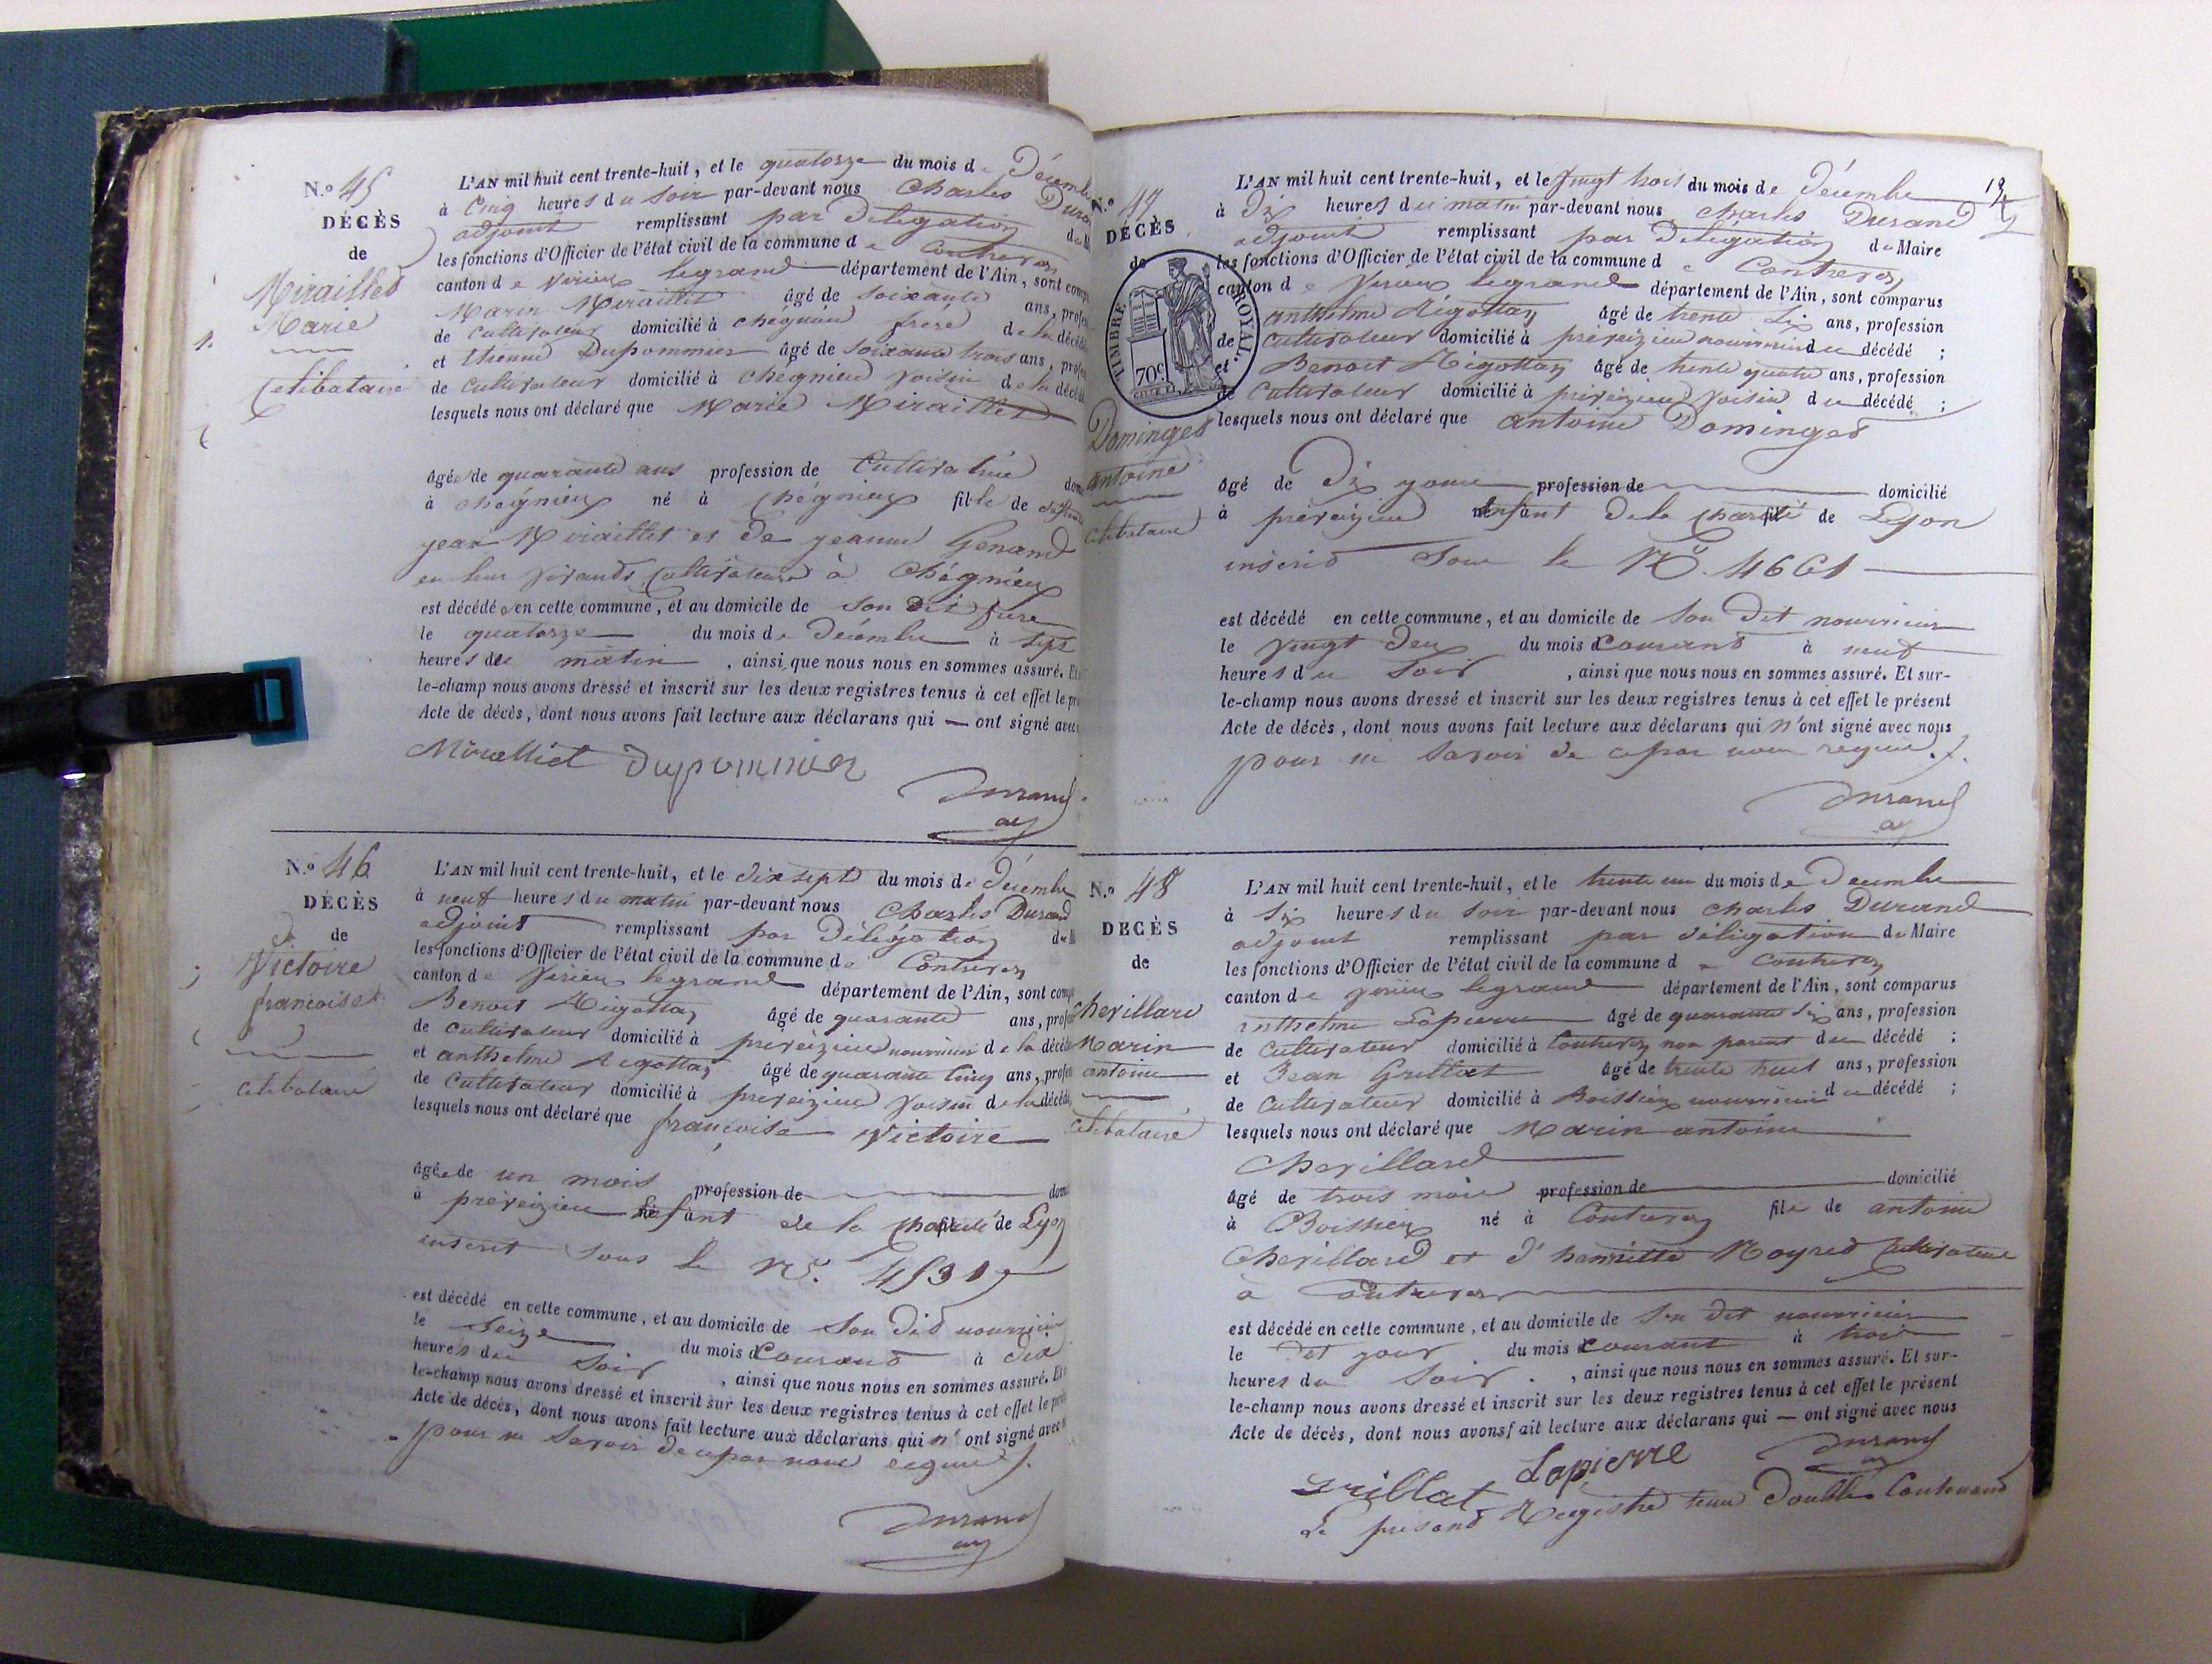 N.º 45
DÉCÈS
de
Miraillet
Marie
Celibataire
L'AN mil huit cent trente-huit, et le quatorze du mois de Décembre
à Cinq heures du soir par-devant nous Charles Duran
adjoint remplissant par Délégation du
les fonctions d'Officier de l'état civil de la commune de Contrevoz
canton de Virieu legrand département de l'Ain, sont comp
Marin Miraillet âgé de soixante ans, profes
de cultivateur domicilié à chegnieu frère de la décédé
et Etienne Dupommier âgé de soixante trois ans, profes
de cultivateur domicilié à chegnieu voisin de la décédé
lesquels nous ont déclaré que Marie Miraillet
âgée de quarante ans profession de Cultivatrice dom
à chégnieu né à Chégnieu fille de
jean Miraillet et de jeanne Genand
en leur vivants Cultivateurs à Chégnieu
est décédée en cette commune, et au domicile de son dit frere
le quatorze du mois de Décembre à sept
heures du matin, ainsi que nous nous en sommes assuré. Et
le-champ nous avons dressé et inscrit sur les deux registres tenus à cet effet le pr
Acte de décès, dont nous avons fait lecture aux déclarans qui — ont signé avec
Miralliet Dupommier
Durand
adj
N.º 46
DÉCÈS
de
Victoire
francoise
celibataire
L'AN mil huit cent trente-huit, et le dix sept du mois de Décembre
à neuf heures du matin par-devant nous Charles Durand
adjoint remplissant par Délégation du M
les fonctions d'Officier de l'état civil de la commune de Contrevoz
canton de Virieu legrand département de l'Ain, sont comp
Benoit Rigottaz âgé de quarante ans, profes
de cultivateur domicilié à preveizieu nourricier de la décédé
et anthelme Rigottaz âgé de quarante Cinq ans, profes
de cultivateur domicilié à preveizieu voisin de la décédé
lesquels nous ont déclaré que francoise Victoire
âgée de un mois profession de dom
à preveizieu Enfant de la charité de Lyon
inscrit sous le Nº. 4531
est décédé en cette commune, et au domicile de son dit nourricier
le seize du mois Courant à dix
heures du soir, ainsi que nous nous en sommes assuré. Et
le-champ nous avons dressé et inscrit sur les deux registres tenus à cet effet le prés
Acte de décès, dont nous avons fait lecture aux déclarans qui n'ont signé avec
pour ne savoir de ce par nous requis.
Durand
adj
N.º 47
DÉCÈS
de
TIMBRE ROYAL.
70 c
Dominget
antoine
celibataire
L'AN mil huit cent trente-huit, et le vingt trois du mois de Décembre
à Dix heures du matin par-devant nous Charles Durand
adjoint remplissant par Délégation du Maire
les fonctions d'Officier de l'état civil de la commune de Contrevoz
canton de Virieu legrand département de l'Ain, sont comparus
anthelme Rigottaz âgé de trente six ans, profession
de cultivateur domicilié à préveizieu nourricier du décédé ;
et Benoit Rigottaz âgé de trente quatre ans, profession
de cultivateur domicilié à préveizieu voisin du décédé ;
lesquels nous ont déclaré que antoine Dominget
âgé de Dix jours profession de domicilié
à préveizieu Enfant de la charité de Lyon
inscrit sous le Nº. 4661
est décédé en cette commune, et au domicile de son dit nourricier
le vingt deux du mois Courant à neuf
heures du soir, ainsi que nous nous en sommes assuré. Et sur-
le-champ nous avons dressé et inscrit sur les deux registres tenus à cet effet le présent
Acte de décès, dont nous avons fait lecture aux déclarans qui n'ont signé avec nous
pour ne savoir de ce par nous requis.
Durand
adj
N.º 48
DÉCÈS
de
Chevillard
Marin
antoine
celibataire
L'AN mil huit cent trente-huit, et le trente un du mois de Decembre
à Six heures du soir par-devant nous Charles Durand
adjoint remplissant par délégation du Maire
les fonctions d'Officier de l'état civil de la commune de Contrevoz
canton de Virieu legrand département de l'Ain, sont comparus
anthelme Lapierre âgé de quarante six ans, profession
de cultivateur domicilié à Contrevoz non parent du décédé ;
et Jean Grilliet âgé de trente huit ans, profession
de Cultivateur domicilié à Boissieu nourricier du décédé ;
lesquels nous ont déclaré que Marin antoine
Chevillard
âgé de trois mois profession de domicilié
à Boissieu né à Contrevoz fils de antoine
Chevillard et d'henriette Moyret Cultivateur
à Contrevoz
est décédé en cette commune, et au domicile de son dit nourricier
le dit jour du mois courant à trois
heures du soir, ainsi que nous nous en sommes assuré. Et sur-
le-champ nous avons dressé et inscrit sur les deux registres tenus à cet effet le présent
Acte de décès, dont nous avons fait lecture aux déclarans qui — ont signé avec nous
Grillat Lapierre Durand
adj
Le present Registre tenu Double Contenant